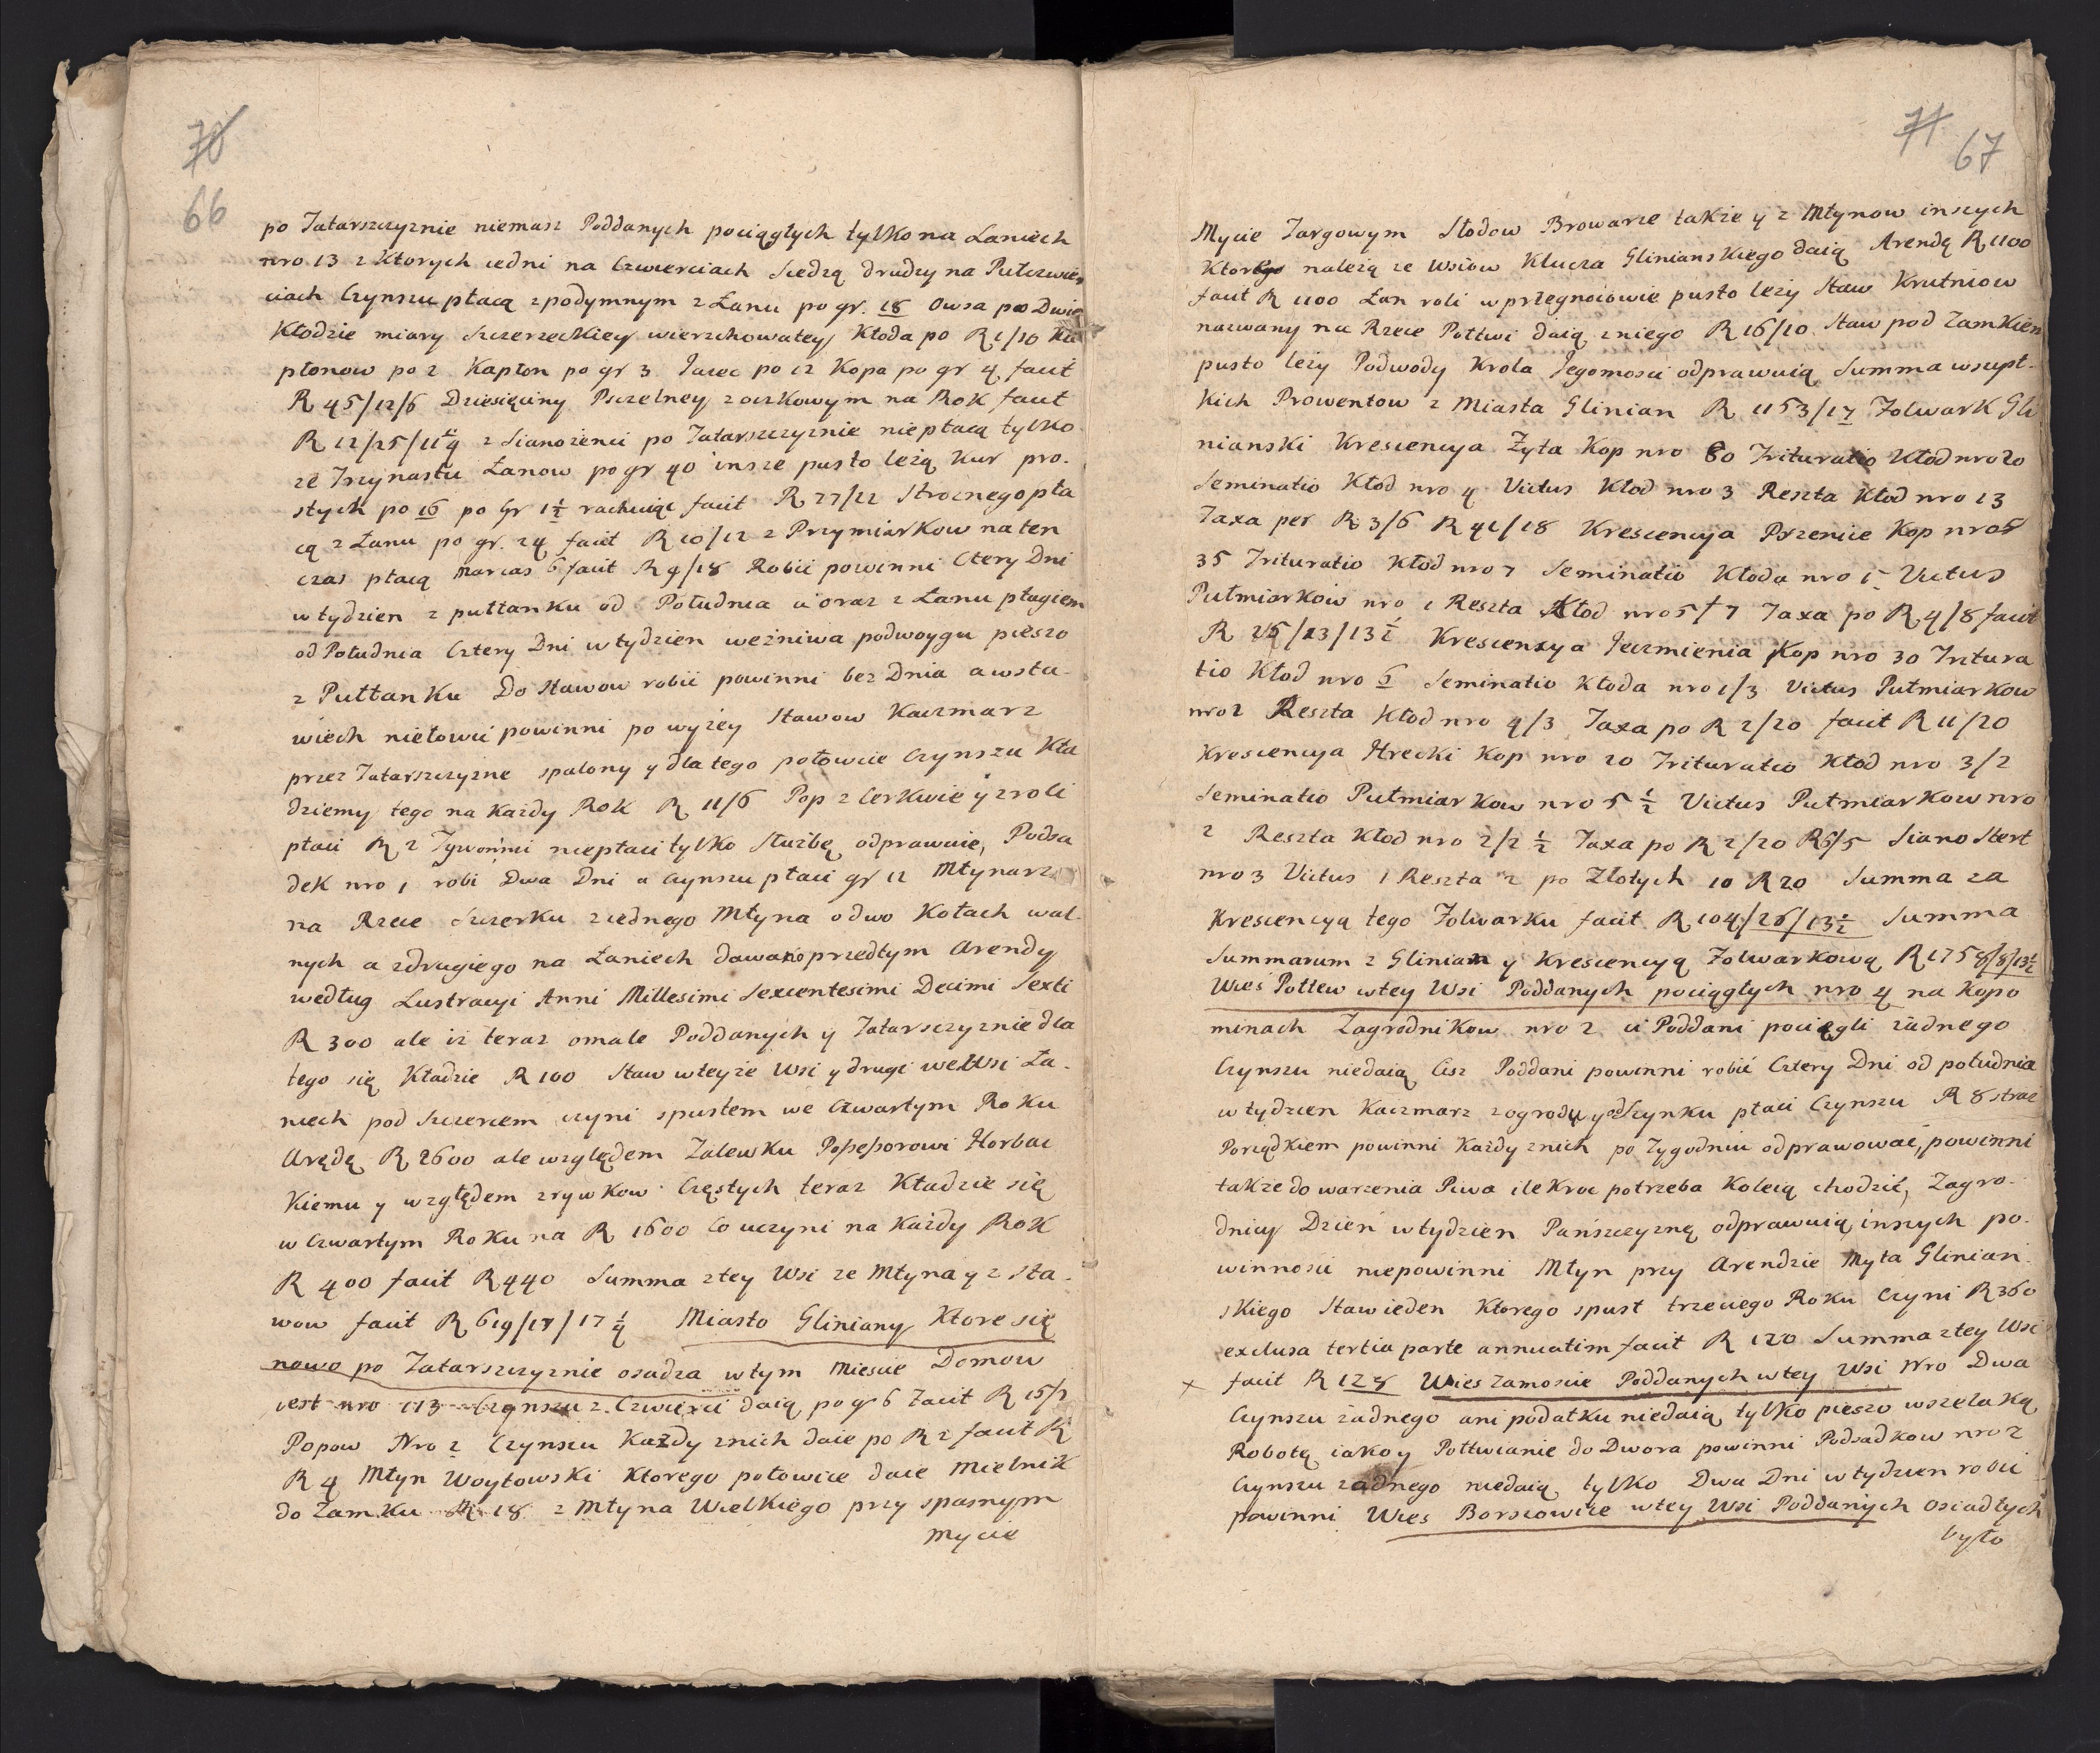 70
66
po Tatarszczyznie niemasz Poddanych pociągłych tylko na Łaniech
nro 13 z Ktorych iedni na Czwierciach Siedzą drudzy na Pułczwier
ciach Czynszu płacą z podymnym z Łanu po gr. 18 Owsa po Dwie
Kłodzie miary Szczerzeckiey wierzchowatey Kłoda po R 1/10 Ka
płonow po 2 Kapłon po gr 3 Jaiec po 12 Kopa po gr 4 facit
R 45/12/6 Dziesięciny Pszczelney z oczkowym na Rok facit
R 12/25/11 1/4 z Sianożenci po Tatarszczyznie niepłacą tylko
ze Trzynastu Łanow po gr 40 insze pusto leżą Kur pro.
stych po 16 po Gr 1 1/2 rachuiąc facit R 27/22 Stroznego pła
cą z Łanu po gr. 24 facit R 10/12 z Przymiarkow na ten
czas płacą marcas 6 facit R 9/18 Robić powinni Cztery Dni
w tydzien z pułłanku od Południa a oraz z Łanu pługiem
od Południa Cztery Dni w tydzien we żniwa podwoygu pieszo
z Pułłanku Do Stawow robić powinni bez Dnia a wsta-
wiech niełowić powinni po wyżey Stawow Kaczmarz
przez Tatarszczyzne spalony y dla tego połowicę Czynszu Kła
dziemy tego na Każdy Rok R 11/6 Pop z Cerkwie y z roli
płaci R 2 Tywonni niepłaci tylko Służbę odprawuie, Podsa
dek nro 1 robi Dwa Dni a czynszu płaci gr 12 Młynarz
na Rzece Szczerku z iednego Młyna o dwo Kołach wal-
nych a zdrugiego na Łaniech dawano przedtym Arendy
według Lustracyi Anni Millesimi Sexcentesimi Decimi Sexti
R 300 ale iz teraz o male Poddanych y Tatarszczyznie dla
tego się Kładzie R 100 Staw wteyże Wsi y drugi we Wsi Ła-
niech pod Szczercem czyni spustem we Czwartym Roku
Arędę R 2600 ale względem Zalewku Possessorowi Horbac
Kiemu y względem zrywkow Częstych teraz Kładzie się
w Czwartym Roku na R 1600 Co uczyni na Każdy Rok
R 400 facit R 440 Summa ztey Wsi ze Młyna y z Sta-
wow facit R 619/18/17 1/4 Miasto Gliniany Ktore się
nowo po Tatarszczyznie osadza wtym Miescie Domow
iest nro 113 Czynszu z Czwierci daią po gr 6 Facit R 15/2
Popow Nro 2 Czynszu Każdy znich daie po R 2 facit R
R 4 Młyn Woytowski Ktorego połowice daie Mielnik
do Zamku R 18 z Młyna Wielkiego przy spasnym
mycie
71
67
Mycie Targowym Słodow Browarze także y z Młynow inszych
Ktorego należą ze Wsiow Klucza Glinianskiego daią Arendę R 1100
facit R 1100 Łan roli w przegnoiowie pusto leży Staw Krutniow
nazwany na Rzece Połtwi daią zniego R 16/10 Staw pod Zamkiem
pusto leży Podwody Krola Jegomosci odprawuią Summa wszyst-
kich Prowentow z Miasta Glinian R 1153/17 Folwark Gli
nianski Krescencya Żyta Kop nro 80 Trituratio Kłod nro 20
Seminatio Kłod nro 4 Victus Kłod nro 3 Reszta Kłod nro 13
Taxa per R 3/6 R 41/18 Krescencya Pszenice Kop nro
35 Trituratio Kłod nro 7 Seminatio Kłoda nro 1 Victus
Pułmiarkow nro 1 Reszta Kłod nro 5 + 7 Taxa po R 4/8 facit
R 25/23/13 1/2 Krescensya Jęczmienia Kop nro 30 Tritura
tio Kłod nro 6 Seminatio Kłoda nro 1/3 Victus Pułmiarkow
nro 2 Reszta Kłod nro 4/3 Taxa po R 2/20 facit R 11/20
Krescencya Hrecki Kop nro 20 Trituratio Kłod nro 3/2
Seminatio Pułmiarkow nro 5 1/2 Victus Pułmiarkow nro
2 Reszta Kłod nro 2/2 1/2 Taxa po R 2/20 R 6/5 Siano Stert
nro 3 Victus 1 Reszta 2 po Złotych 10 R 20 Summa za
Krescencyą tego Folwarku facit R 104/26/13 1/2 Summa
Summarum z Glinian y Krescencyą Folwarkową R 1258/8/13 1/2
Wies Połtew wtey Wsi Poddanych pociągłych nro 4 na Kopo
minach Zagrodnikow nro 2 ci Poddani pociągli żadnego
Czynszu niedaią Cisz Poddani powinni robić Cztery Dni od południa
w tydzien Kaczmarz zogrodu y od Szynku płaci Czynszu R 8 straż
Porządkiem powinni Każdy znich po Tygodniu odprawować, powinni
także do warzenia Piwa ile Kroc potrzeba Koleią chodzić, Zagro-
dnicy Dzień w tydzien Pańszczyznę odprawuią, inszych po-
winnosci niepowinni Młyn przy Arendzie Myta Glinian
skiego Staw ieden Ktorego spust trzeciego Roku Czyni R 360
exclusa tertia parte annuatim facit R 120 Summa ztey Wsi
× facit R 128 Wies Zamoscie Poddanych wtey Wsi Nro Dwa
Czynszu żadnego ani podatku niedaią tylko pieszo wszelaką
Robotę iako y Połtwianie do Dwora powinni Podsadkow nro 2
Czynszu żadnego niedaią tylko Dwa Dni w tydzien robić
powinni Wies Borszowice wtey Wsi Poddanych osiadłych
było